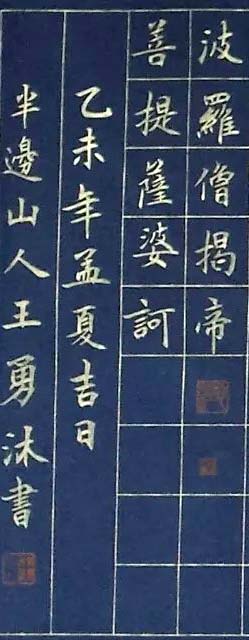 波羅僧揭帝
菩提薩婆訶
乙未年孟夏吉日
半邊山人王勇沐書